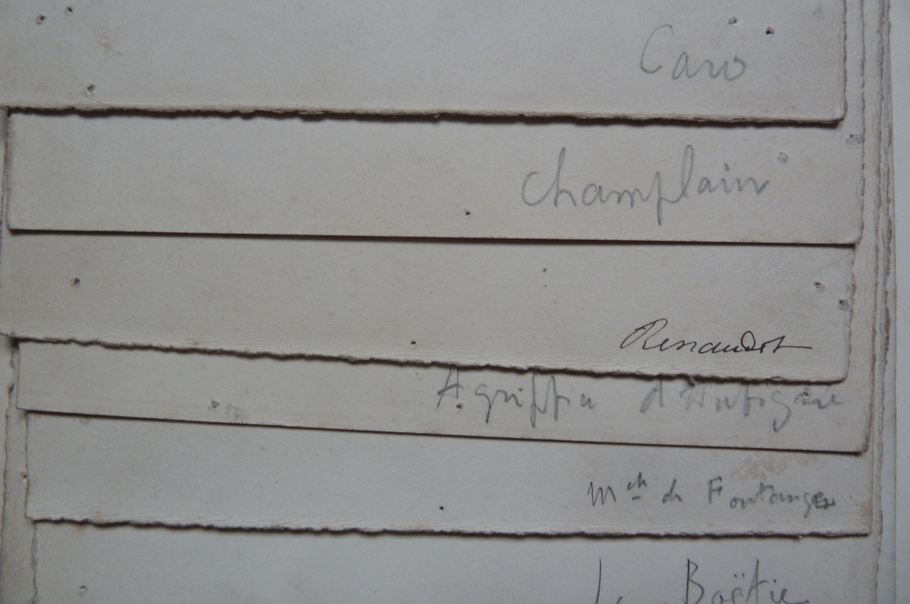 Caro
Champlain
Renaudot
Agrippa d'Aubigné
Melle de Fontanges
La Boëtie